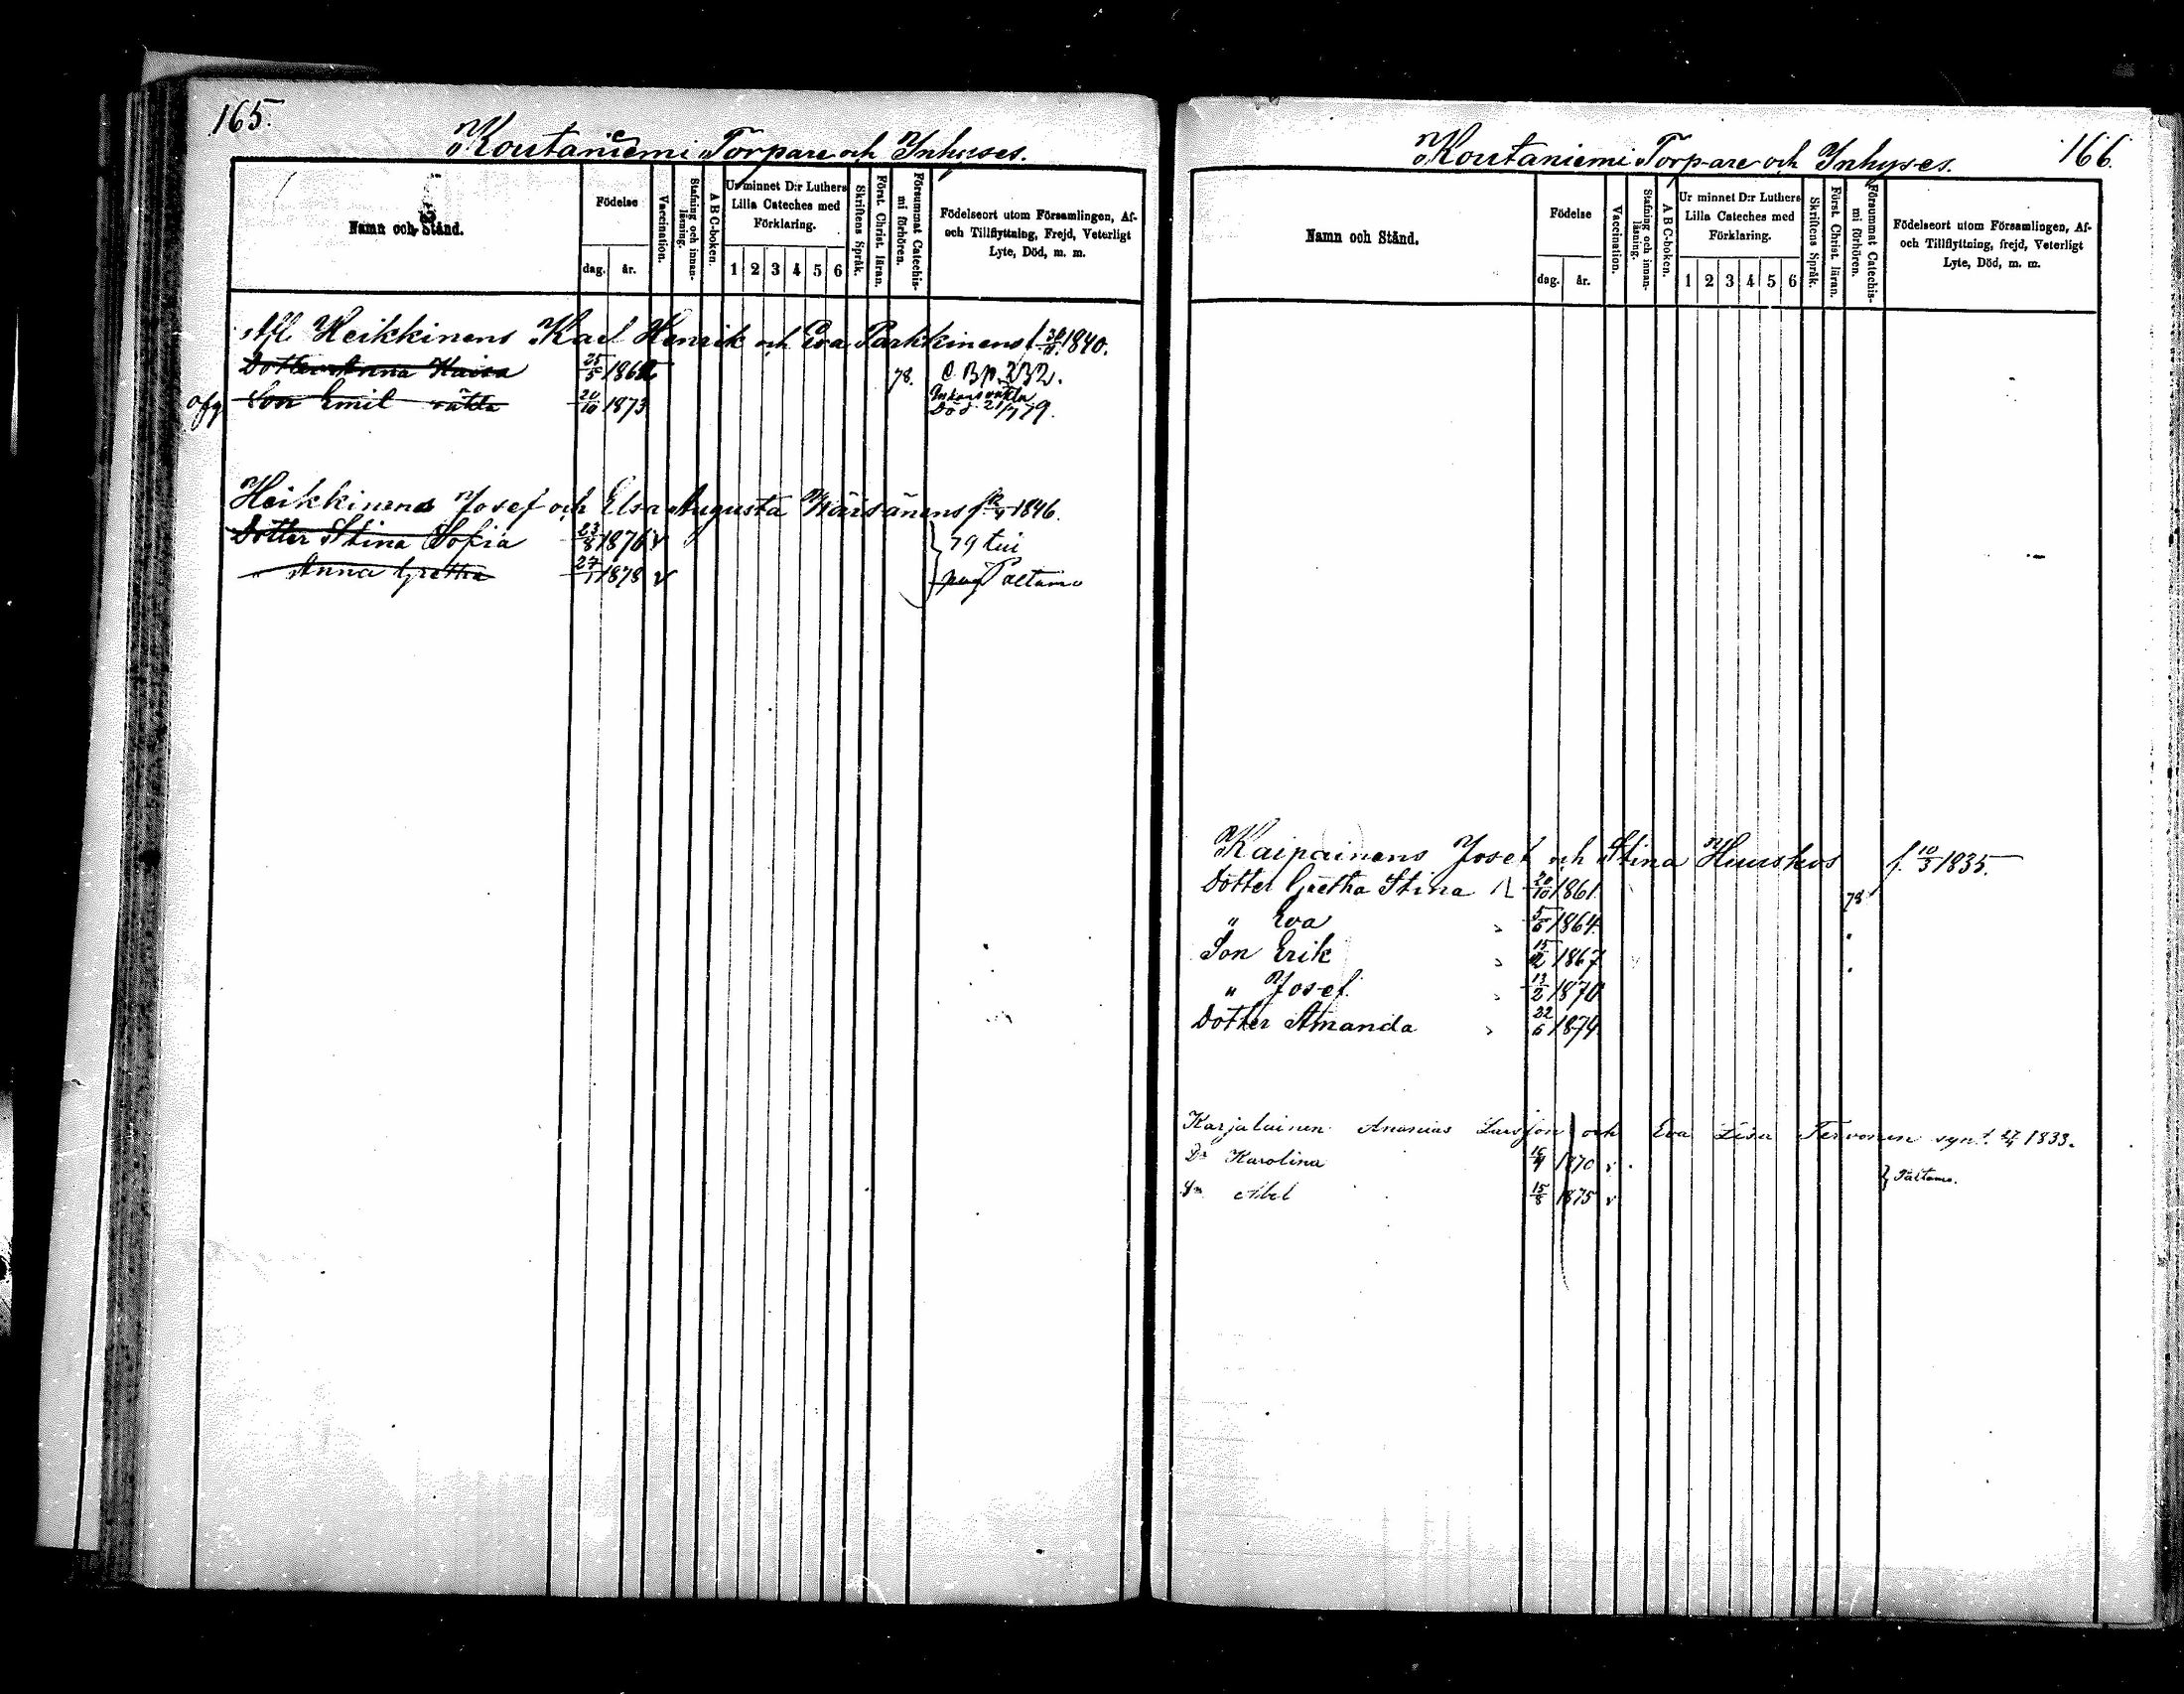 165.
Koutaniemi Torpare och Inhyses.
Namn och Stånd.
Födelse
dag. år.
Vaccination.
Stafning och innanläsning.
A B C-boken.
Ur minnet D:r Luthers Lilla Cateches med Förklaring.
1 2 3 4 5 6
Skriftens Språk.
Först. Christ. läran.
Försummat Catechismi förhören.
Födelseort utom Församlingen, Af- och Tillflyttning, Frejd, Veterligt Lyte, Död, m. m.
Afl. Heikkinens Karl Henrik och Eva Parkkinens f 1840.
Dotter Anna Kaisa 25/5 1862 78. C. B p. 232.
afg Son Emil oäkta 20/10 1873 Död 21/7 79.
Heikkinens Josef och Elsa Augusta Kärsänens f. 1846.
Dotter Stina Sofia 23/8 1876 v } 79 tui
" Anna Gretha 27/1 1878 v Paltamo
166.
Koutaniemi Torpare och Inhyses.
Namn och Stånd.
Födelse
dag. år.
Vaccination.
Stafning och innanläsning.
A B C-boken.
Ur minnet D:r Luthers Lilla Cateches med Förklaring.
1 2 3 4 5 6
Skriftens Språk.
Först. Christ. läran.
Försummat Catechismi förhören.
Födelseort utom Församlingen, Af- och Tillflyttning, frejd, Veterligt Lyte, Död, m. m.
Kaipainens Josef och Stina Huuskos f. 10/3 1835.
Dotter Gretha Stina 20/10 1861 78
" Eva 5/6 1864
Son Erik 15/12 1867
" Josef 13/2 1870
Dotter Amanda 22/6 1874
Karjalainen Ananias Larsson och Eva Lisa Tervonen synt. 1833.
Dr Karolina 16/4 1870 v
Sn Abel 15/8 1875 v } Paltamo.